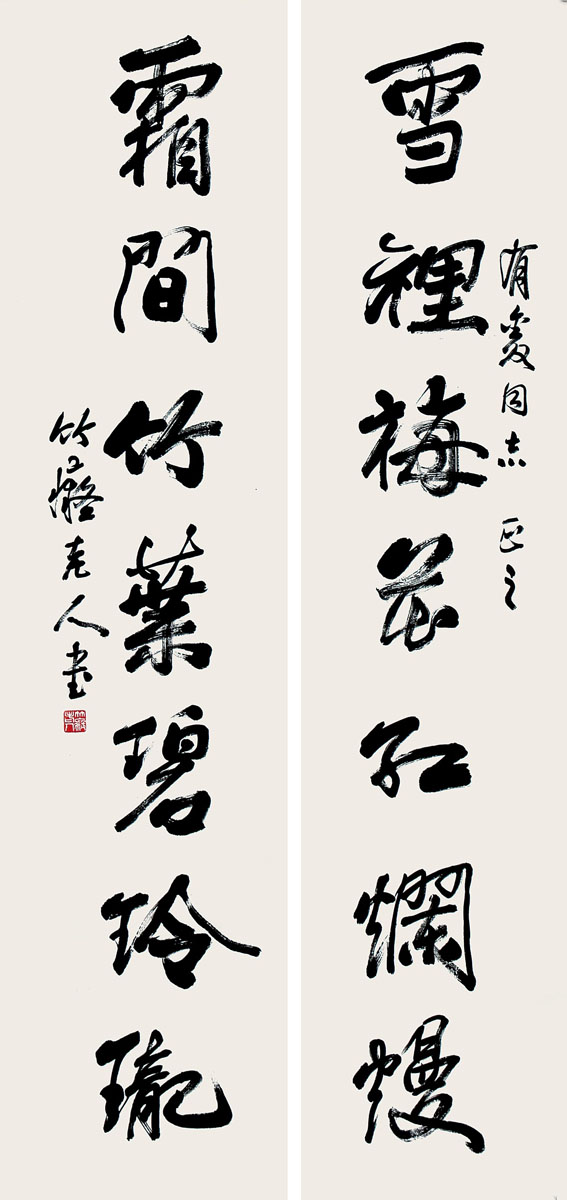 雪裡梅花紅爛熳
有爱同志 正之
霜間竹葉碧玲瓏
竹癡老人書